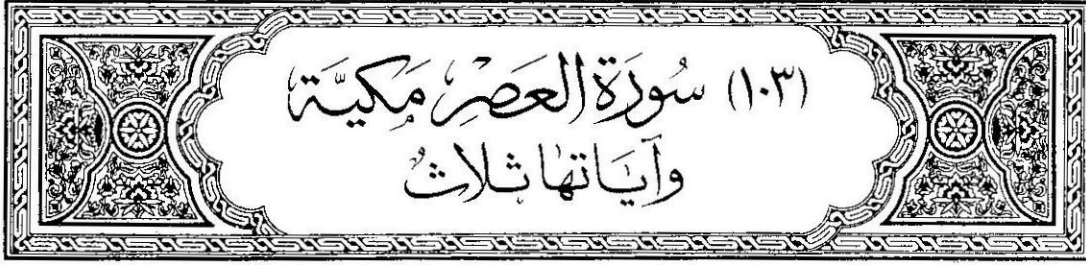 (١٠٣) سُورَة العَصْرِ مَكيَّة
وآيَاتهَا ثَلَاثٌ